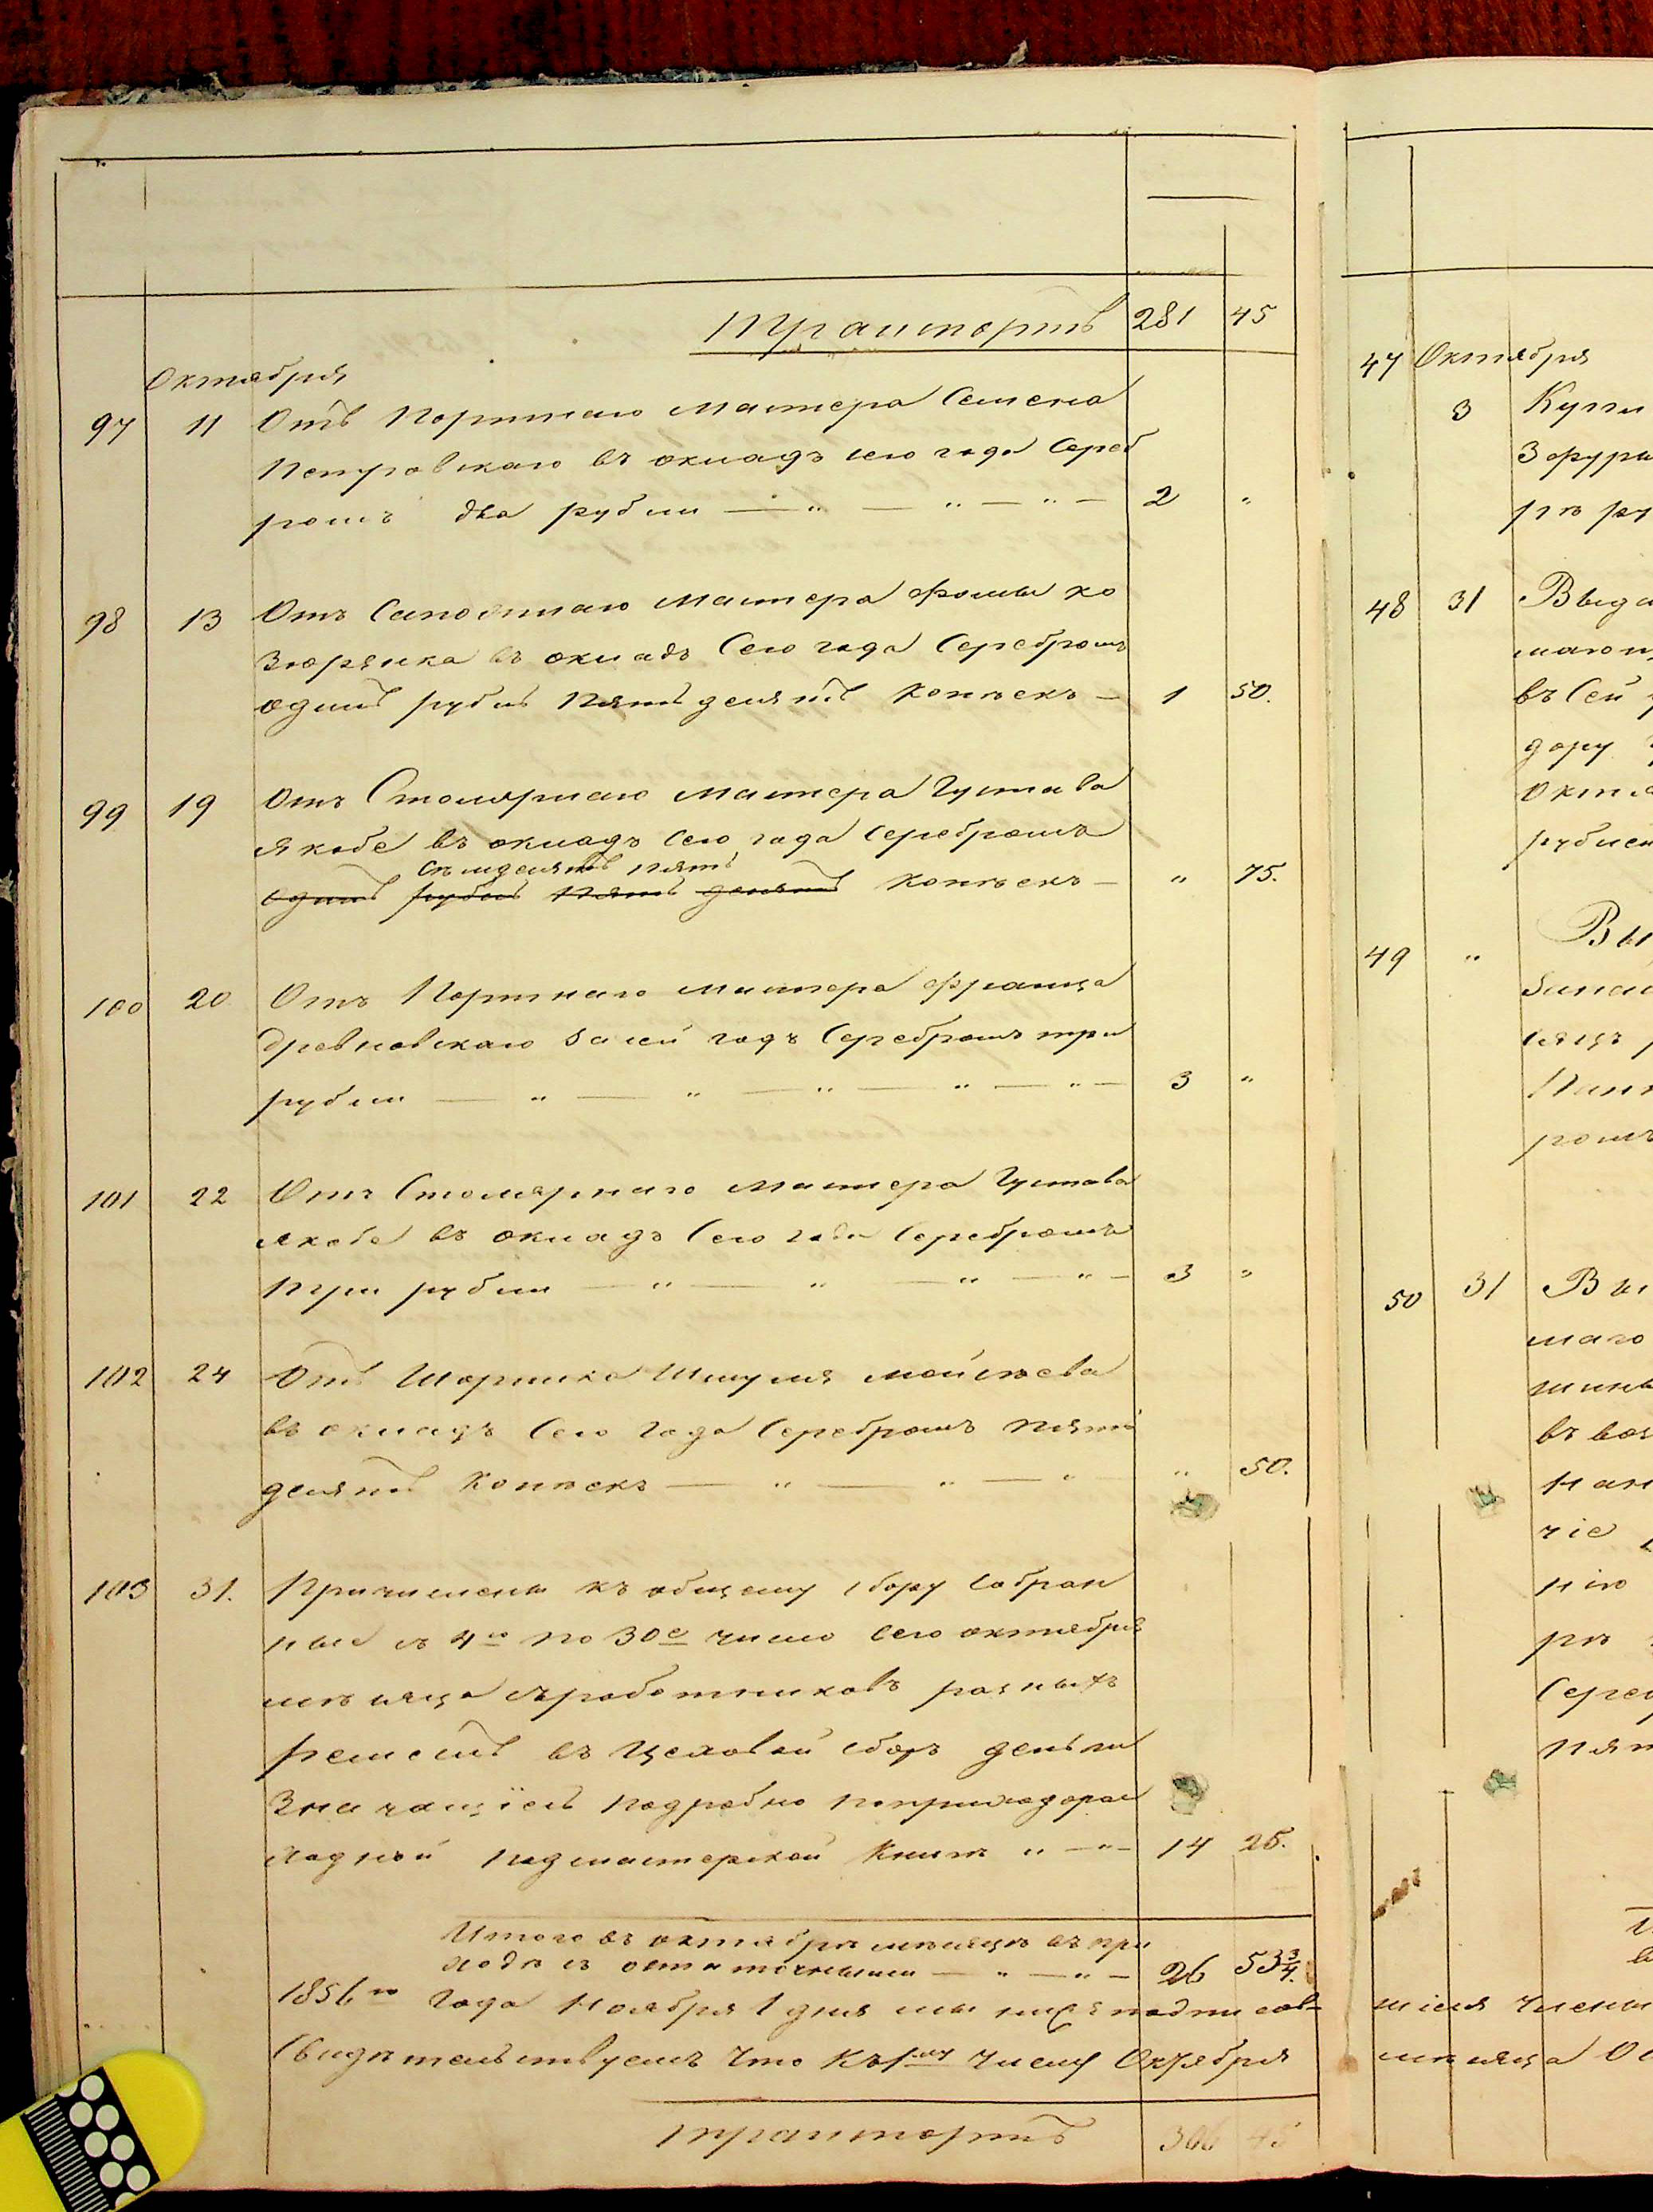 Транспортъ 281 45
Октября
97 11 Отъ Портнаго мастера Семена
Петровскаго въ окладъ сего года Сереб
ромъ два рубли — " — " — " — 2 "
98 13 Отъ Сапожнаго мастера Фомы Ко
зюрянка въ окладъ Сего года Серебромъ
одинъ рубль Пятьдесятъ копѣекъ — 1 50.
99 19 Отъ Столярнаго мастера Густава
Якобе въ окладъ Сего года Серебромъ
Съмдесятъ пять
одинъ рубль Пять десятъ копѣекъ — " 75.
100 20 Отъ Портнаго мастера Франца
Древновскаго за сей годъ Серебромъ три
рубли — " — " — " — " — " — 3 "
101 22 Отъ Столярнаго мастера Густава
Якобе въ окладъ Сего года Серебромъ
три рубли — " — " — " — " — 3 "
102 24 Отъ Шорника Шмуля Мойсѣева
въ окладъ Сего года Серебромъ пять
десятъ Копѣекъ — " — " — " " 50.
103 31. Причислены къ общему сбору Собран
ные съ 4го по 30е число сего октября
мѣсяца съ работниковъ разныхъ
ремеслъ въ Цеховой сборъ деньги
Значащіесь подробно по приходорас
ходной подмастерской Книгѣ " — " — 14 25.
Итого въ октябрѣ мѣсяцѣ въ при
ходѣ съ остаточными — " — " — 26 53 3/4.
1856го года Ноября 1 дня мы нижеподписав-
Свидѣтельствуемъ Что Къ 1му Числу Октября
транспортъ 306 45
47 Октября
3 Купл
рѣ ру
48 31 Выда
въ Сей
дору
Октя
рублей
49 " Вы
сяцъ
ромъ
50 31 Вы
маго
въ воз
нан
чіе
нію
рѣ
Сереб
пят
шіеся Члены
мѣсяца Ок